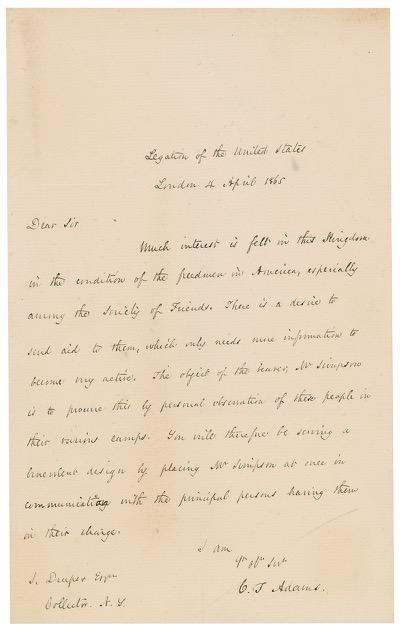 Legation of the United States
London 4 April 1865
Dear Sir
Much interest is felt in this Kingdom
in the condition of the freedmen in America, especially
among the Society of Friends. There is a desire to
send aid to them, which only needs more information to
become very active. The object of the bearer, Mr Simpson
is to procure this by personal observation of these people in
their various camps. You will therefore be serving a
benevolent design by placing Mr Simpson at once in
communication with the principal persons having them
in their charge.
I am
Yr obt Svt
C. F. Adams.
S. Draper Esqre
Collector. N. Y.